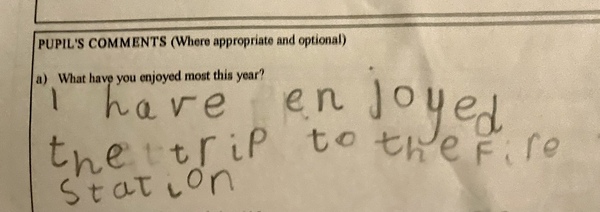 PUPIL'S COMMENTS (Where appropriate and optional)
a) What have you enjoyed most this year?
I have enjoyed
the trip to the Fire
Station